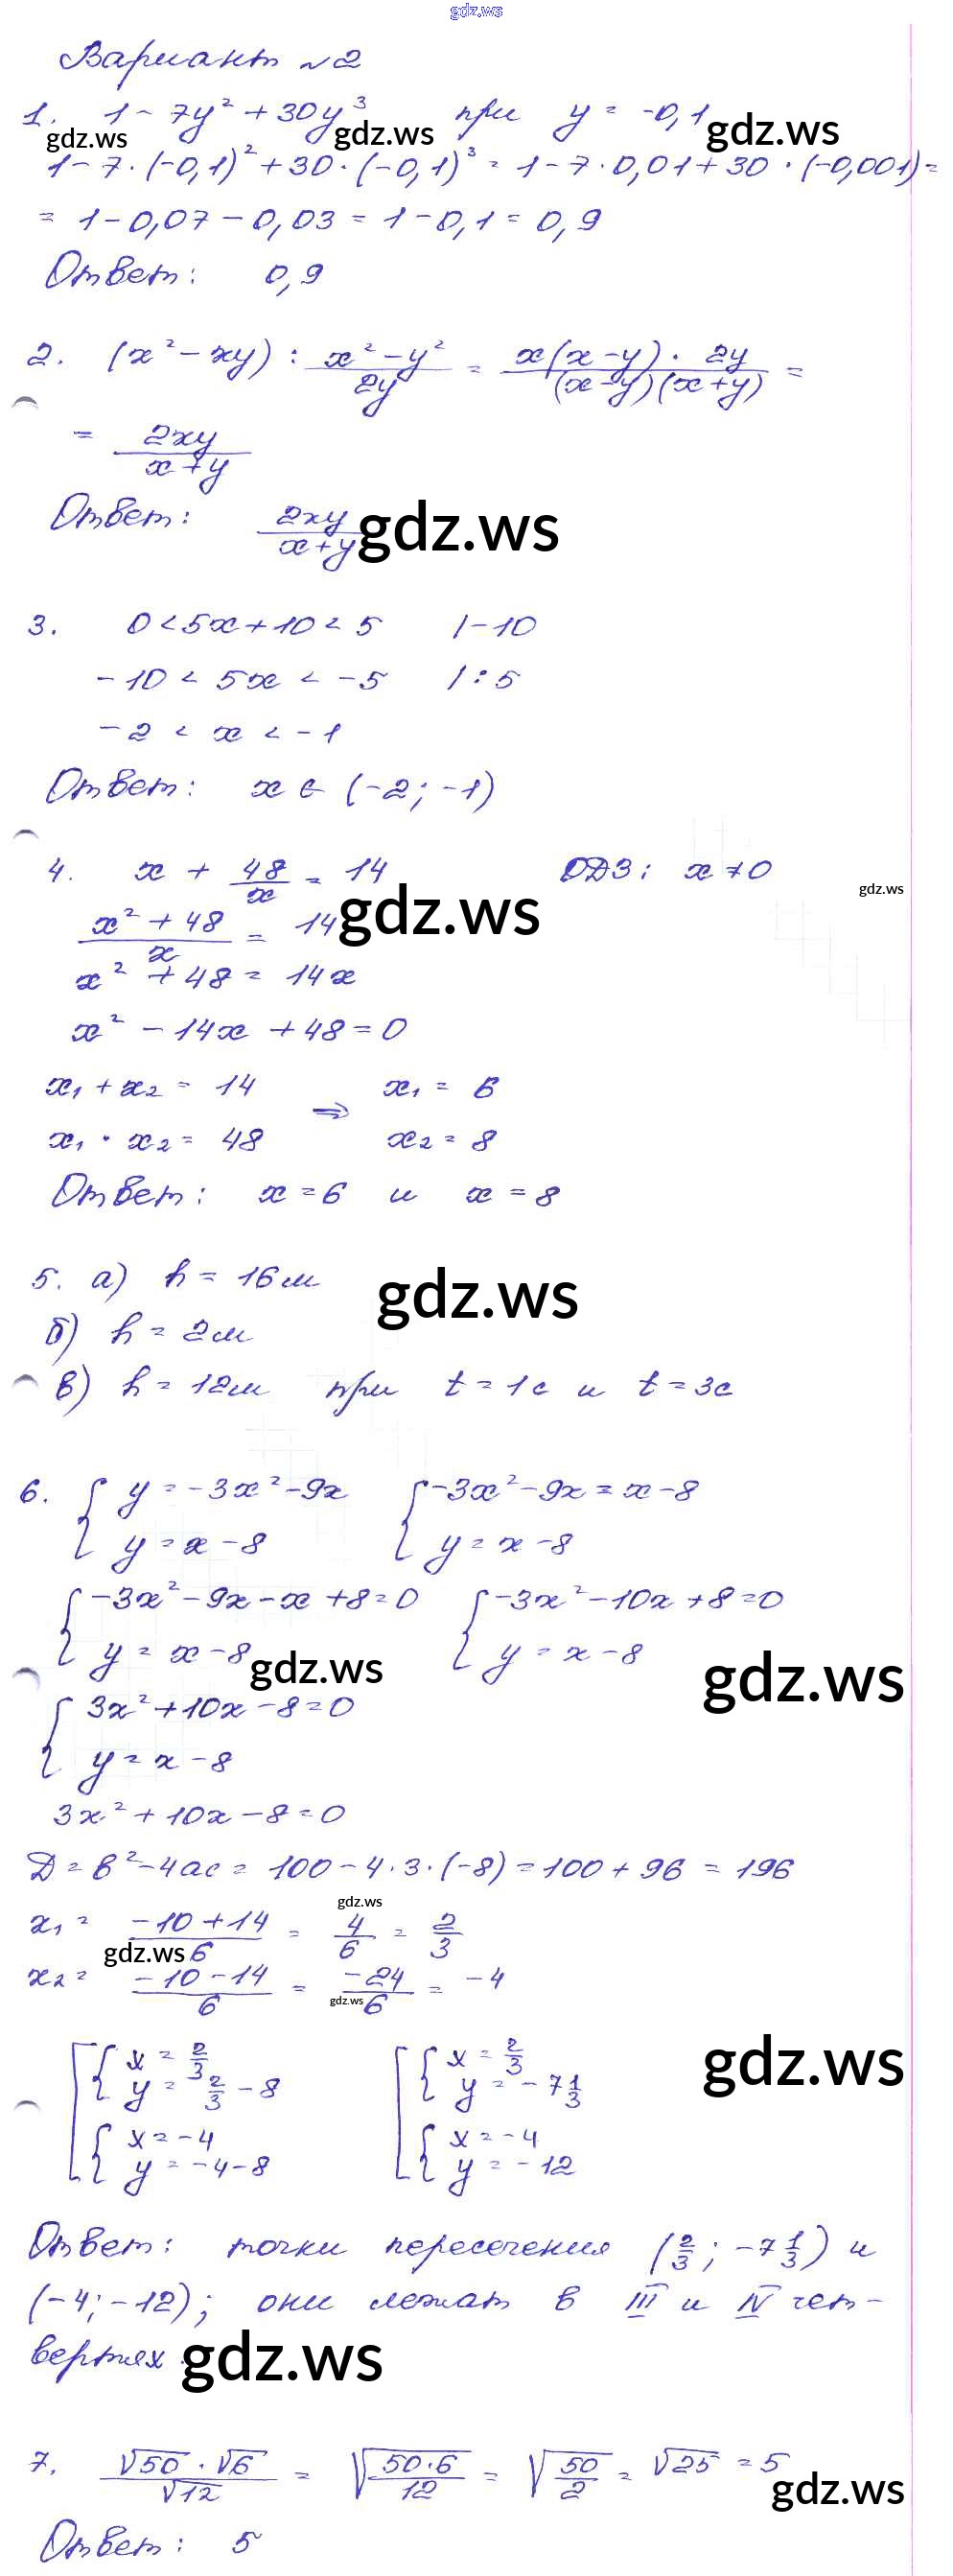 gdz.ws
Вариант №2
1. 1 - 7y² + 30y³ при y = -0,1
gdz.ws gdz.ws gdz.ws
1 - 7·(-0,1)² + 30·(-0,1)³ = 1 - 7·0,01 + 30·(-0,001) =
= 1 - 0,07 - 0,03 = 1 - 0,1 = 0,9
Ответ: 0,9
2. (x² - xy) : (x² - y²)/2y = x(x-y)·2y/(x-y)(x+y) =
= 2xy/x+y
Ответ: 2xy/x+y
gdz.ws
3. 0 < 5x + 10 < 5 |-10
-10 < 5x < -5 |:5
-2 < x < -1
Ответ: x ∈ (-2; -1)
4. x + 48/x = 14 ОДЗ: x ≠ 0
gdz.ws
x² + 48/x = 14
gdz.ws
x² + 48 = 14x
x² - 14x + 48 = 0
x₁ + x₂ = 14 ⇒ x₁ = 6
x₁ · x₂ = 48 x₂ = 8
Ответ: x = 6 и x = 8
5. а) h = 16м
gdz.ws
б) h = 2м
в) h = 12м при t = 1с и t = 3с
6. { y = -3x² - 9x { -3x² - 9x = x - 8
y = x - 8 y = x - 8
{ -3x² - 9x - x + 8 = 0 { -3x² - 10x + 8 = 0
y = x - 8 y = x - 8
gdz.ws gdz.ws
{ 3x² + 10x - 8 = 0
y = x - 8
3x² + 10x - 8 = 0
Д = в² - 4ас = 100 - 4·3·(-8) = 100 + 96 = 196
gdz.ws
x₁ = -10+14/6 = 4/6 = 2/3
gdz.ws
x₂ = -10-14/6 = -24/6 = -4
gdz.ws
[ { x = 2/3 [ { x = 2/3
y = 2/3 - 8 y = -7 1/3
gdz.ws
{ x = -4 { x = -4
y = -4-8 y = -12
Ответ: точки пересечения (2/3; -7 1/3) и
(-4; -12); они лежат в III и IV чет-
вертях.
gdz.ws
7. √50 · √6/√12 = √(50·6/12) = √(50/2) = √25 = 5
gdz.ws
Ответ: 5